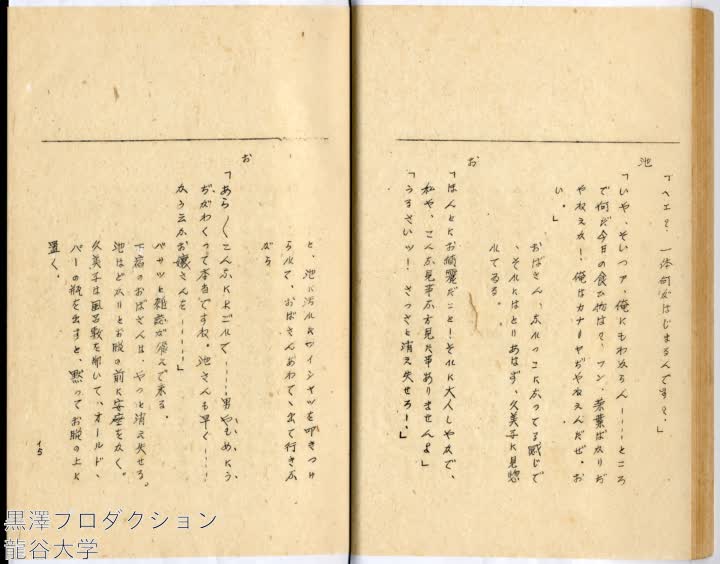 「ヘエ?、一体何がはじまるんです?、」
池
「いや、そいつァ、俺にもわからん……ところ
で何だ今日の食い物は?、フン、菜葉ばかりぢ
やねえな!、俺はカナーヤぢやねえんだぜ。お
い。」
おばさん、ふれっこになってる感じで
、それにはとりあはず、久美子に見惚
れてゐる。
お
「ほんとにお綺麗だこと!それに大人しやかで、
私や、こんな見事な方見た事ありませんよ」
「うるさいッ!、さっさと消え失せろ!、」
と、池に汚れたワイシャツを叩きつけ
られて、おばさんあわてゝ出て行きな
がら
お
「あら〱こんなによごして……男やもめにう
ぢがわくって本当ですね。池さんも早く……
かう云ふお嬢さんを……」
バサッと雑誌が飛んで来る。
下宿のおばさんは、やっと消え失せる。
池はどかりとお膳の前に安座をかく。
久美子は風呂敷を解いて、オールド、
パーの瓶を出すと、黙ってお膳の上に
置く。
15
黒澤プロダクション
龍谷大学